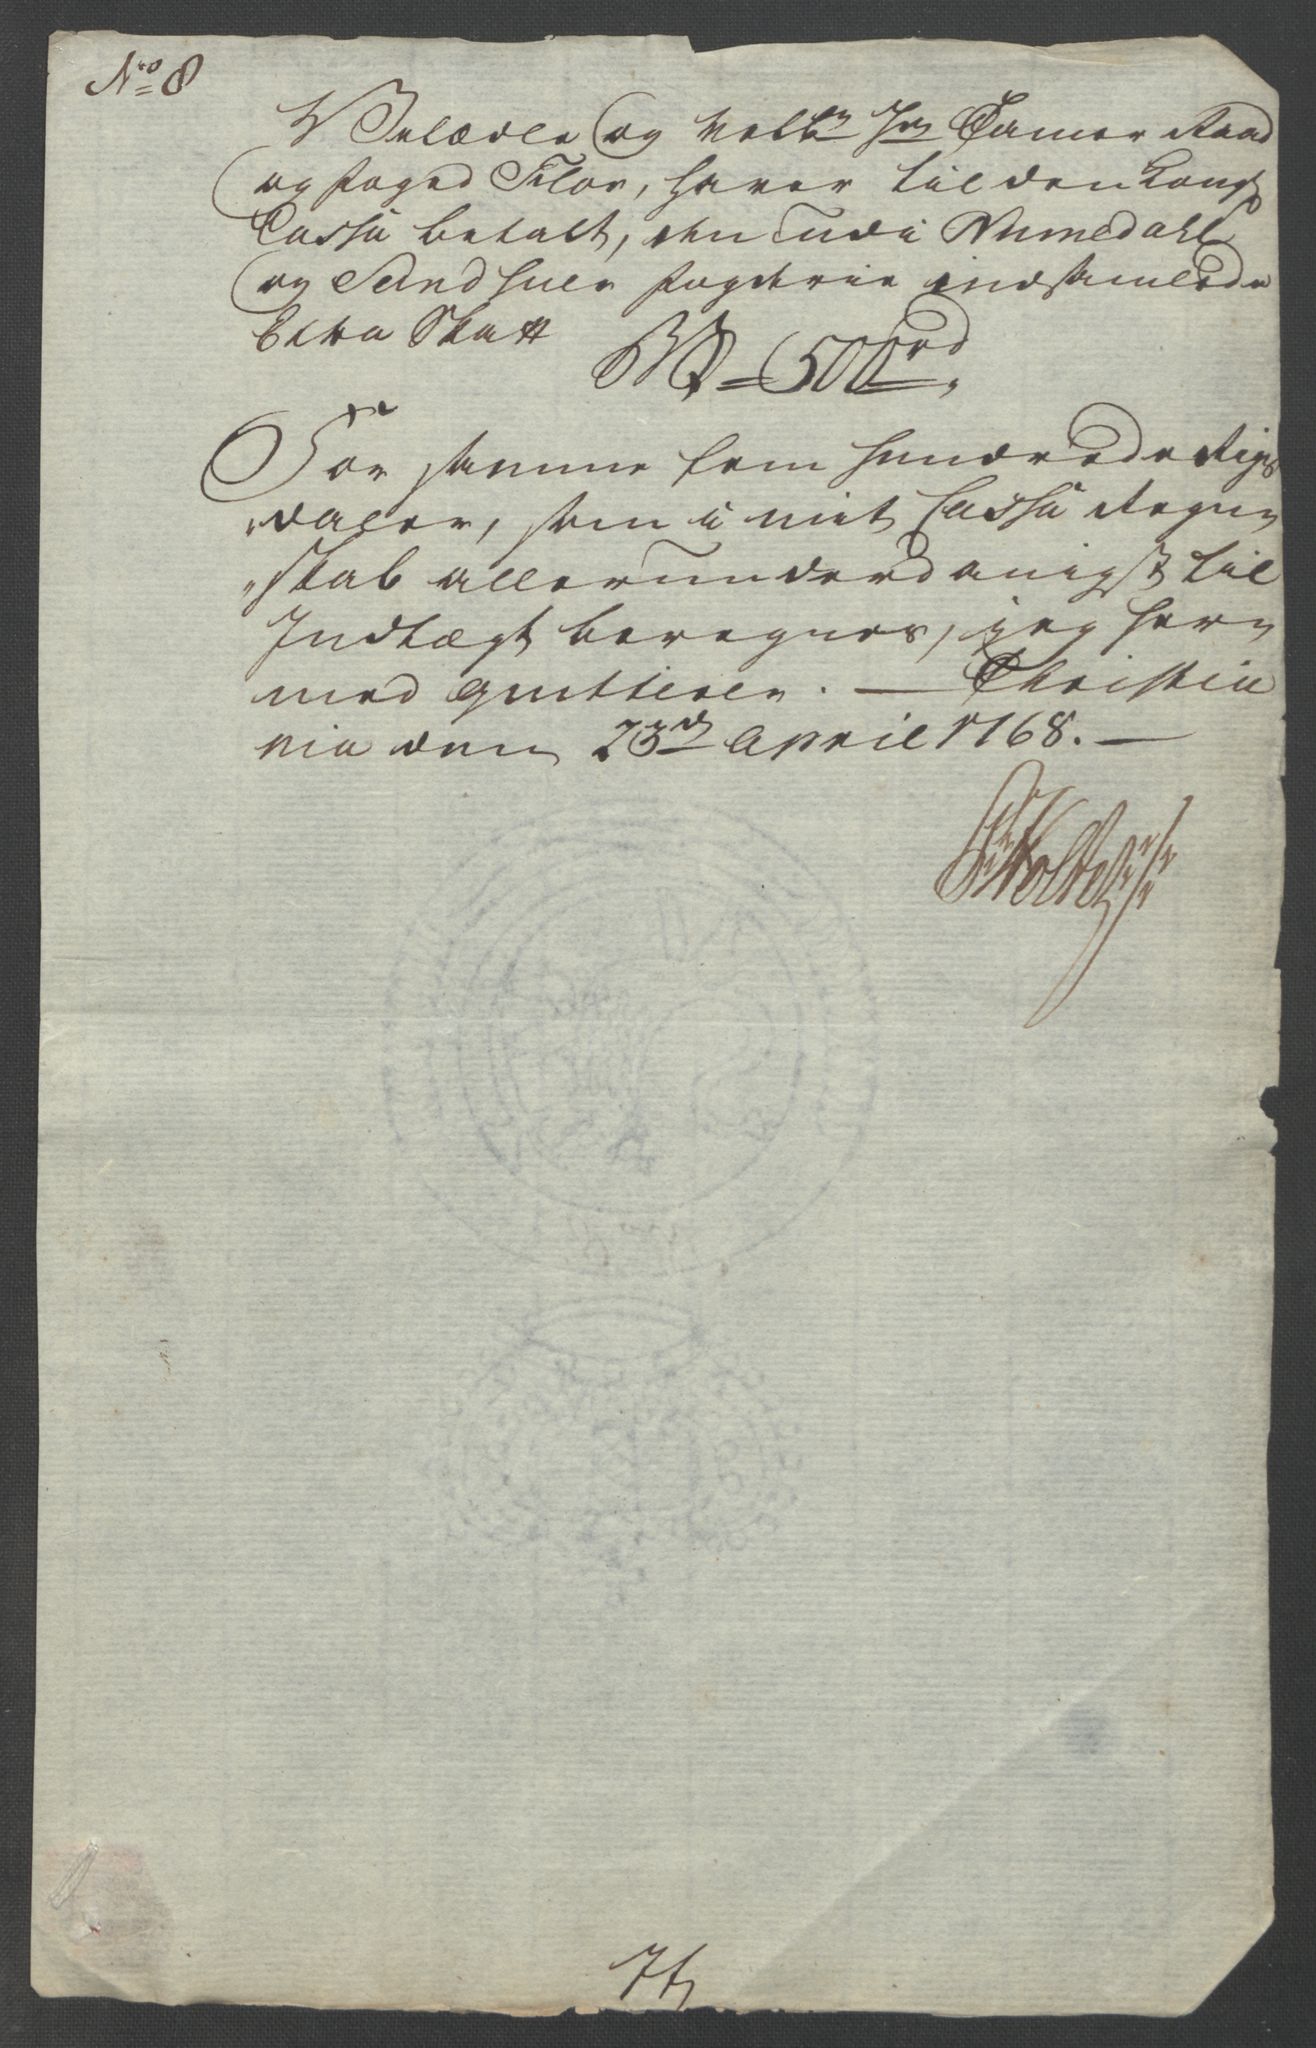 No 8
Velædle og Velbr Hr Camer Raad
og Foged Flor, haver til den Kongl
Cassa betalt, den udi Numedahl
og Sandsuer Fogderie indsamlede
Extra Skatt
Rd 500rd
For samme fem hundrede Rigs
daler, som i mit Cassa Regn
skab allerunderdanigst til
Indtægt beregnes, jeg her
med quitterer. — Christia
nia den 23de April 1768. —